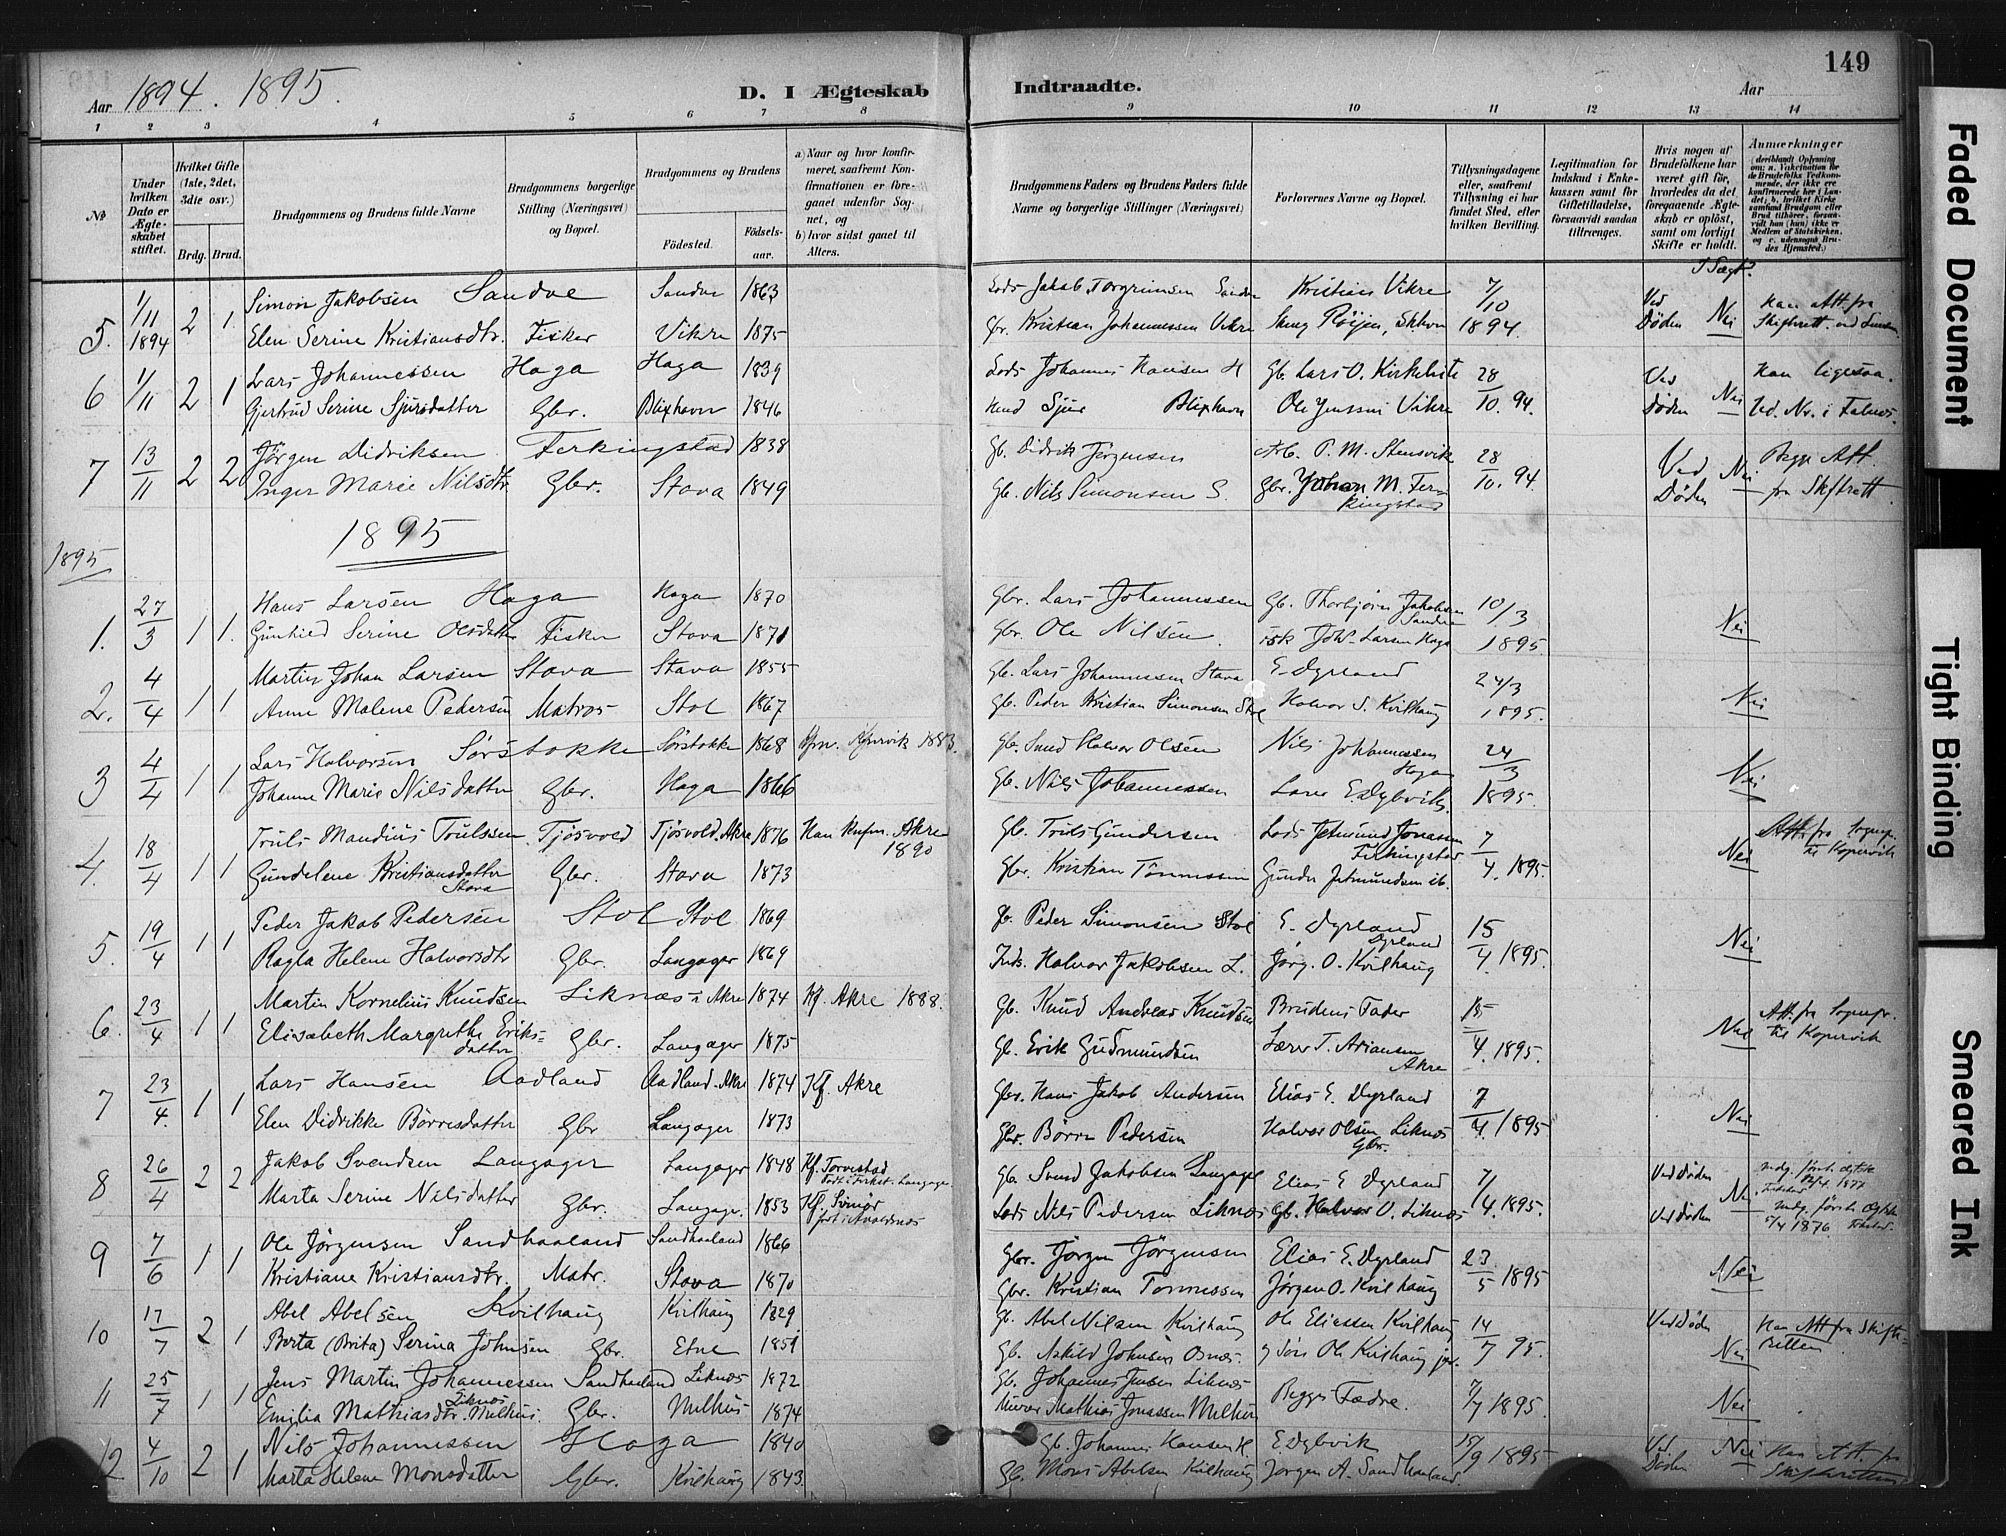 149
Aar 1894. 1895.
D. I Ægteskab Indtraadte.
Aar
1 2 3 4 5 6 7 8 9 10 11 12 13 14
№
Under hvilken Dato er Ægteskabet stiftet.
Hvilket Gifte (1ste, 2det, 3die osv.)
Brdg. Brud.
Brudgommens og Brudens fulde Navne
Brudgommens borgerlige Stilling (Næringsvei) og Bopæl.
Brudgommens og Brudens
Fødested. Fødselsaar.
a) Naar og hvor konfirmeret, saafremt Konfirmationen er foregaaet udenfor Sognet, og
b) hvor sidst gaaet til Alters.
Brudgommens Faders og Brudens Faders fulde Navne og borgerlige Stillinger (Næringsvei)
Forlovernes Navne og Bopæl.
Tillysningsdagene eller, saafremt Tillysning ei har fundet Sted, efter hvilken Bevilling.
Legitimation for Indskud i Enkekassen samt for Giftetilladelse, forsaavidt saadan tiltrænges.
Hvis nogen af Brudefolkene har været gift før, hvorledes da det foregaaende Ægteskab er opløst, samt om lovligt Skifte er holdt.
Anmærkninger
5. 1/11 1894 2 1 Simon Jakobsen Sandve Sandve 1863 Lods Jakob Torgrimsen Sandve Kristian Vikre 7/10 Ved
Elen Serine Kristiansdtr. Fisker Vikre 1875 Gbr. Kristian Johannessen Vikre 1894. Døden Nei
6 1/11 2 1 Lars Johannessen Haga Haga 1839 Lods Johannes Hansen H Gb. Lars O. Kirkeleite 28 Ved Han ligesaa.
Gjertrud Serine Sjursdatter Gbr. Blixhavn 1846 Sjur Blixhavn Ole Jenssen Vikre 10. 94. Døden Nei
7 13/11 2 2 Jørgen Didriksen Ferkingstad 1838 Gb. Didrik Jørgensen P. M. Stensvik 28 Ved Nei Begge Att.
Inger Marie Nilsdtr Gbr. Stava 1849 Gb. Nils Simonsen S. Gbr. Johan M. Fer- 10. 94 Døden fra Skiftrett.
kingstad
1895
1895
1. 27/3 1 1. Hans Larsen Haga Haga 1870 Gbr. Lars Johannessen Gb. Thorbjørn Jakobsen Sandve 10/3
Gunhild Serine Olsdatter Fisker Stava 1871 Gbr. Ole Nilsen. Larsen Haga 1895. Nei
2. 4/4 1 1 Martin Johan Larsen Stava Stava 1855 Gb. Lars Johannessen Stava E. Dyrland 24/3
Anne Malene Pedersen Matros Stol 1867 Gb. Peder Kristian Simonsen Stol Halvor S. Kvilhaug 1895. Nei
3 4/4 1 1 Lars Halvorsen Sørstokke Sørstokke 1868 Kopervik 1883. Halvor Olsen Nils Johannessen Haga 24/3
Johanne Marie Nilsdatter Gbr. Haga 1866 Gb. Nils Johannessen 1895. Nei
4. 18/4 1 1 Truls Mandius Trulssen Tjøsvold Tjøsvold. Akre 1876 Han knfm. Akre 1890 Gb. Truls Gundersen Lods Jetmund Jonassen Ferkingstad 7 Att. fra Sognepr. til Kopervik
Gundelene Kristiansdatter Stava Gbr. Stava 1873 Gbr. Kristian Tønnessen Gunder Jetmundsen ib. 4. 1895. Nei
5. 19/4 1 1 Peder Jakob Pedersen Stol Stol 1869 Gb. Peder Simonsen Stol E. Dyrland Dyrland 15
Ragla Helene Halvorsdtr Gbr. Langager 1869 Inds. Halvor Jakobsen L. Jørg. O. Kvilhaug 4. 1895. Nei
6. 23/4 1 1 Martin Kornelius Knudsen Liknæs i Akre 1874 Kf. Akre 1888. Gb. Knud Andreas Knudsen Brudens Fader 15 Att. fra Sognepr. til Kopervik
Elisabeth Margrethe Eriks- datter Gbr. Langager 1875 Gb. Erik Gudmundsen Lærer T. Ariansen Akre 4. 1895. Nei
7 23/4. 1 1 Lars Hansen Aadland Aadland. Akre 1874 Kf. Akre Gbr. Hans Jakob Andersen Elias E. Dyrland 7
Elen Didrikke Børresdatter Gbr Langager 1873 Gbr. Børre Pedersen Halvor Olsen Liknæs Gbr. 4. 1895 Nei
8 26/4 2 2 Jakob Svendsen Langager Langager 1848 Kf. Torvestad Gb. Svend Jakobsen Langager Elias E Dyrland 7/ Ved Døden
Marta Serine Nilsdatter Gbr. Langager. 1853 Kf. Lods Nils Pedersen Liknæs Gb. Halvor O. Liknæs 4. 1895. Nei Ved Døden 1876
9 7/6 1 1 Ole Jørgensen Sandhaaland Sandhaaland 1866 Gbr. Jørgen Jørgensen Elias E. Dyrland 23
Kristiane Kristiansdtr. Matr. Stava 1870 Gbr. Kristian Tønnessen Jørgen O. Kvilhaug 5 1895 Nei
10 17/7 2 1 Abel Abelsen Kvilhaug Kvilhaug 1829 Gb. Abel Nilsen Kvilhaug Ole Eliassen Kvilhaug 14 Ved Døden Han Att fra Skifte-
Berta (Brita) Serina Johnsen Gbr. Etne 1859 Gb. Askild Johnsen Osnes. Ole Kvilhaug 7 95. Nei retten
11 25/7 1 1 Jens Martin Johannessen Liknæs Sandhaaland Liknæs 1872 Gb. Johannes Jensen Liknæs Begges Fædre. 7/7 1895.
Emilia Mathiasdtr. Melhus. Gbr. Melhus 1874 Murer Mathias Jonassen Melhus Nei
12 4/10 2 1 Nils Johannessen Haga 1840 Gb. Johannes Hansen H E. Dybvik 15/9 1895 Ved Døden Nei Han Att. fra
Marta Helene Monsdatter Gbr. Kvilhaug 1843. Gb. Mons Abelsen Kvilhaug Jørgen A. Sandhaaland. Skifteretten
Faded Document
Tight Binding
Smeared Ink